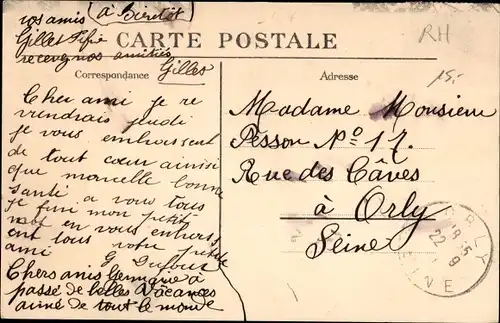 vos amis à Bientôt
Gillet Fifie
recevez nos amitiés
Gilles
CARTE POSTALE
Correspondance
Adresse
RH
15,-
Cher ami je re
viendrais jeudi
je vous embrassent
de tout cœur ainsi
que monelle bonne
santé a vous tous
je fini mon petit
mot en vous embrass
ent tous votre petite
ami
G Dufour
Chers amis Germaine à
passé de belles Vacances
aimé de tout le monde
Madame Monsieur
Pesson No 17.
Rue des Câves
à Orly
Seine
ORLY
SEINE